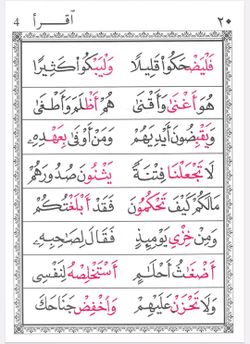 ٢٠ اقرأ 4
فَلْيَضْحَكُوا۟ قَلِيلًا وَلْيَبْكُوا۟ كَثِيرًا
هُوَ أَغْنَىٰ وَأَقْنَىٰ هُمْ أَظْلَمَ وَأَطْغَىٰ
وَيَقْبِضُونَ أَيْدِيَهُمْ وَمَنْ أَوْفَىٰ بِعَهْدِهِۦ
لَا تَجْعَلْنَا فِتْنَةً يَثْنُونَ صُدُورَهُمْ
مَالَكُمْ كَيْفَ تَحْكُمُونَ فَقَدْ أَبْلَغْتُكُمْ
وَمِنْ خِزْيِ يَوْمِئِذٍ فَقَالَ لِصَاحِبِهِۦ
أَضْغَاثُ أَحْلَامٍ أَسْتَخْلِصْهُ لِنَفْسِي
وَلَا تَحْزَنْ عَلَيْهِمْ وَاخْفِضْ جَنَاحَكَ